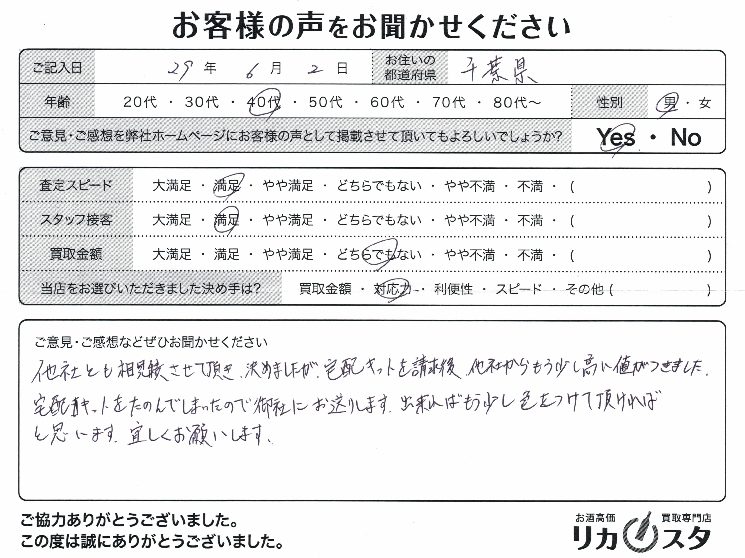 お客様の声をお聞かせください
ご記入日 29 年 6 月 2 日 お住いの都道府県 千葉県
年齢 20代 ・ 30代 ・ 40代 ・ 50代 ・ 60代 ・ 70代 ・ 80代～ 性別 男 ・ 女
ご意見・ご感想を弊社ホームページにお客様の声として掲載させて頂いてもよろしいでしょうか? Yes ・ No
査定スピード 大満足 ・ 満足 ・ やや満足 ・ どちらでもない ・ やや不満 ・ 不満 ・ ( )
スタッフ接客 大満足 ・ 満足 ・ やや満足 ・ どちらでもない ・ やや不満 ・ 不満 ・ ( )
買取金額 大満足 ・ 満足 ・ やや満足 ・ どちらでもない ・ やや不満 ・ 不満 ・ ( )
当店をお選びいただきました決め手は? 買取金額 ・ 対応力 ・ 利便性 ・ スピード ・ その他 ( )
ご意見・ご感想などぜひお聞かせください
他社とも相見積させて頂き、決めましたが、宅配キットを請求後、他社からもう少し高い値がつきました。
宅配キットをたのんでしまったので御社にお送りします。出来ればもう少し色をつけて頂ければ
と思います。宜しくお願いします。
ご協力ありがとうございました。
この度は誠にありがとうございました。
お酒高価 買取専門店
リカスタ